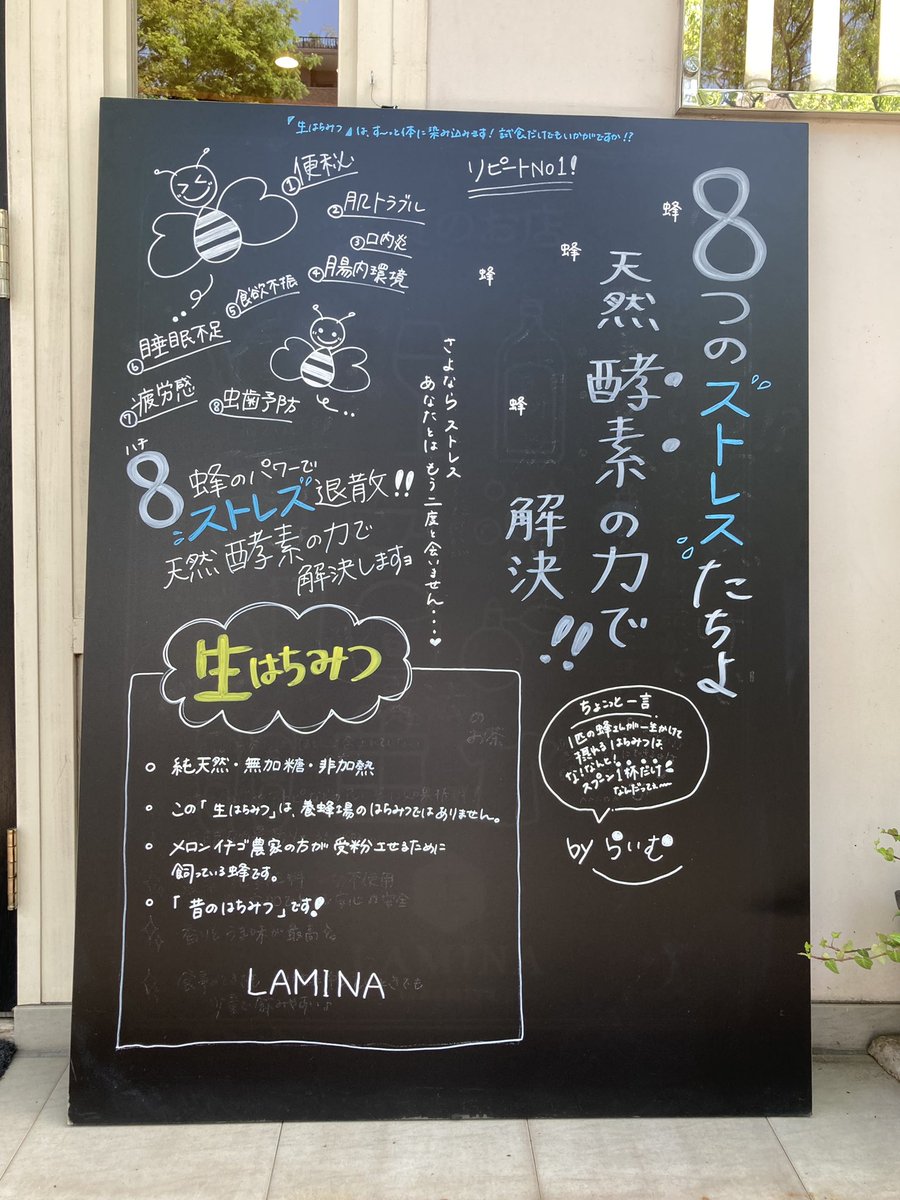 『生はちみつ』は、す〜っと体に染み込みます!試食だけでもいかがですか!?
リピートNO1!
8つのストレスたちよ
天然酵素の力で
解決!!
蜂
蜂
蜂
蜂
①便秘
②肌トラブル
③口内炎
④腸内環境
⑤食欲不振
⑥睡眠不足
⑦疲労感
⑧虫歯予防
さよならストレス
あなたとはもう二度と会いません・・・♥
ハチ
8蜂のパワーで
ストレス退散!!
天然酵素の力で
解決しますョ
生はちみつ
○ 純天然・無加糖・非加熱
○ この「生はちみつ」は、養蜂場のはちみつではありません。
○ メロンイチゴ農家の方が受粉させるために
飼っている蜂です。
○ 「昔のはちみつ」です!
LAMINA
ちょこっと一言
1匹の蜂さんが一生かけて
摂れるはちみつは
な!なんと!
スプーン1杯だけ!
なんだってぇ〜
by らいむ